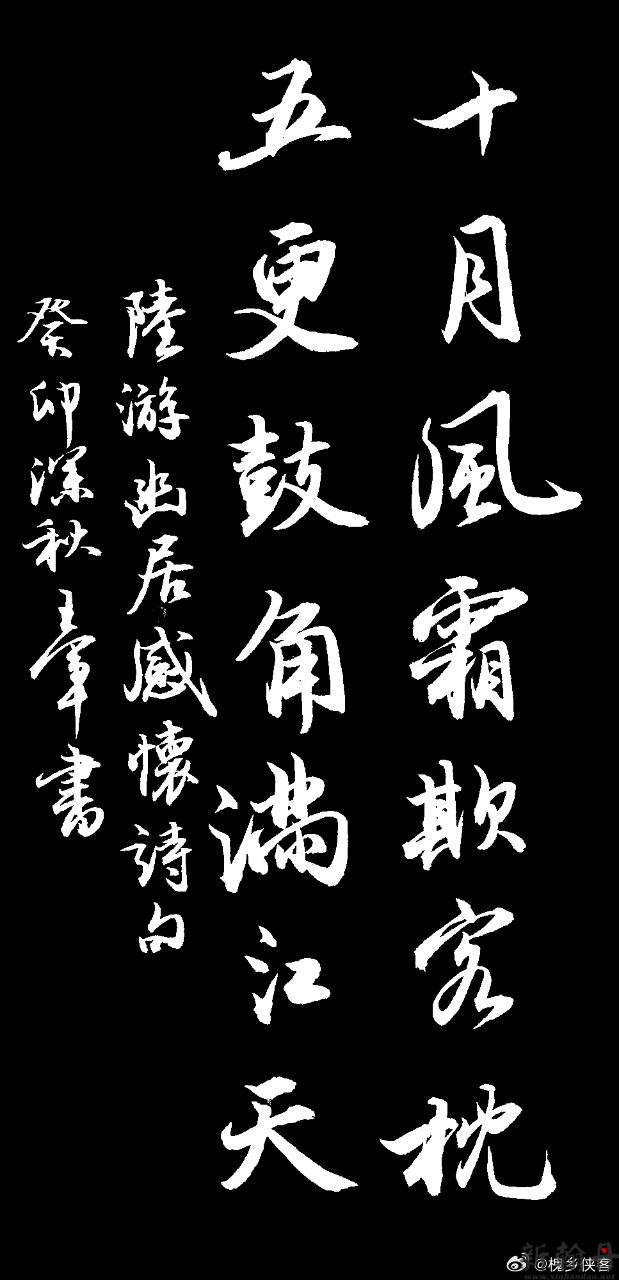 十月風霜欺客枕
五更鼓角滿江天
陸游幽居感懷詩句
癸卯深秋章書
@槐乡侠客
新翰丹
www.xinhandan.net